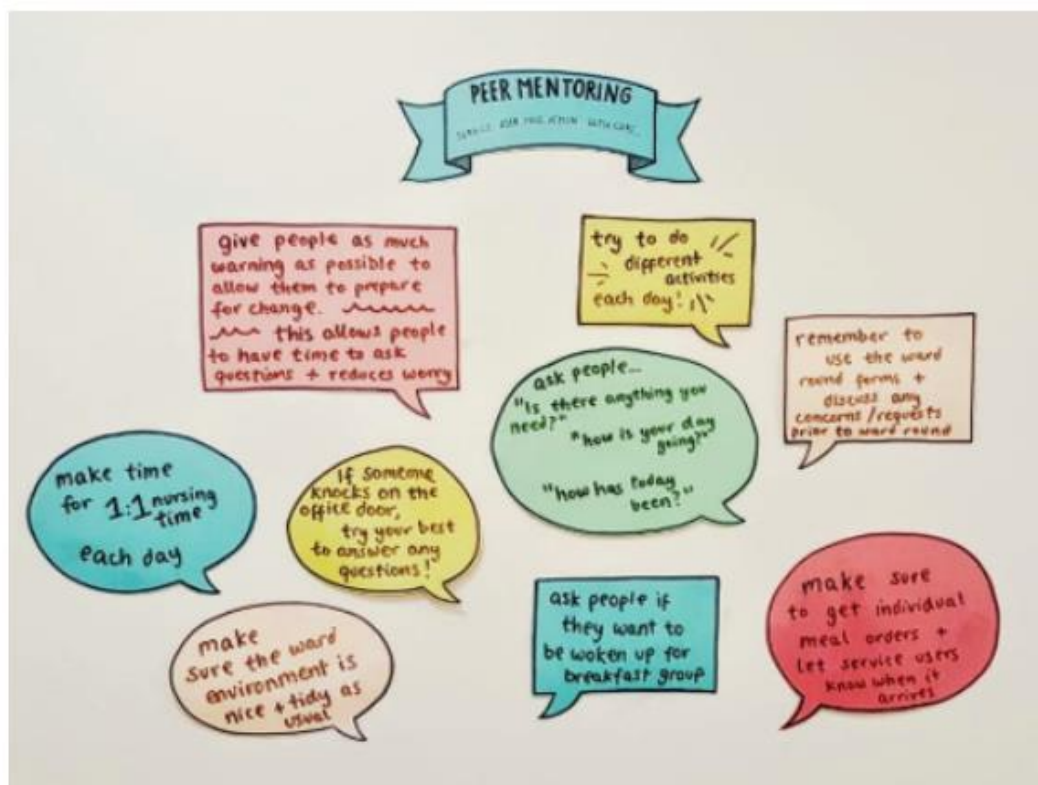 PEER MENTORING
give people as much
warning as possible to
allow them to prepare
for change.
this allows people
to have time to ask
questions + reduces worry
try to do
different
activities
each day!
remember to
use the ward
round forms +
discuss any
concerns/requests
prior to ward round
ask people...
"Is there anything you
need?"
"how is your day
going?"
"how has today
been?"
make time
for 1:1 nursing
time
each day
If someone
knocks on the
office door,
try your best
to answer any
questions!
make
sure the ward
environment is
nice + tidy as
usual
ask people if
they want to
be woken up for
breakfast group
make sure
to get individual
meal orders +
let service users
know when it
arrives